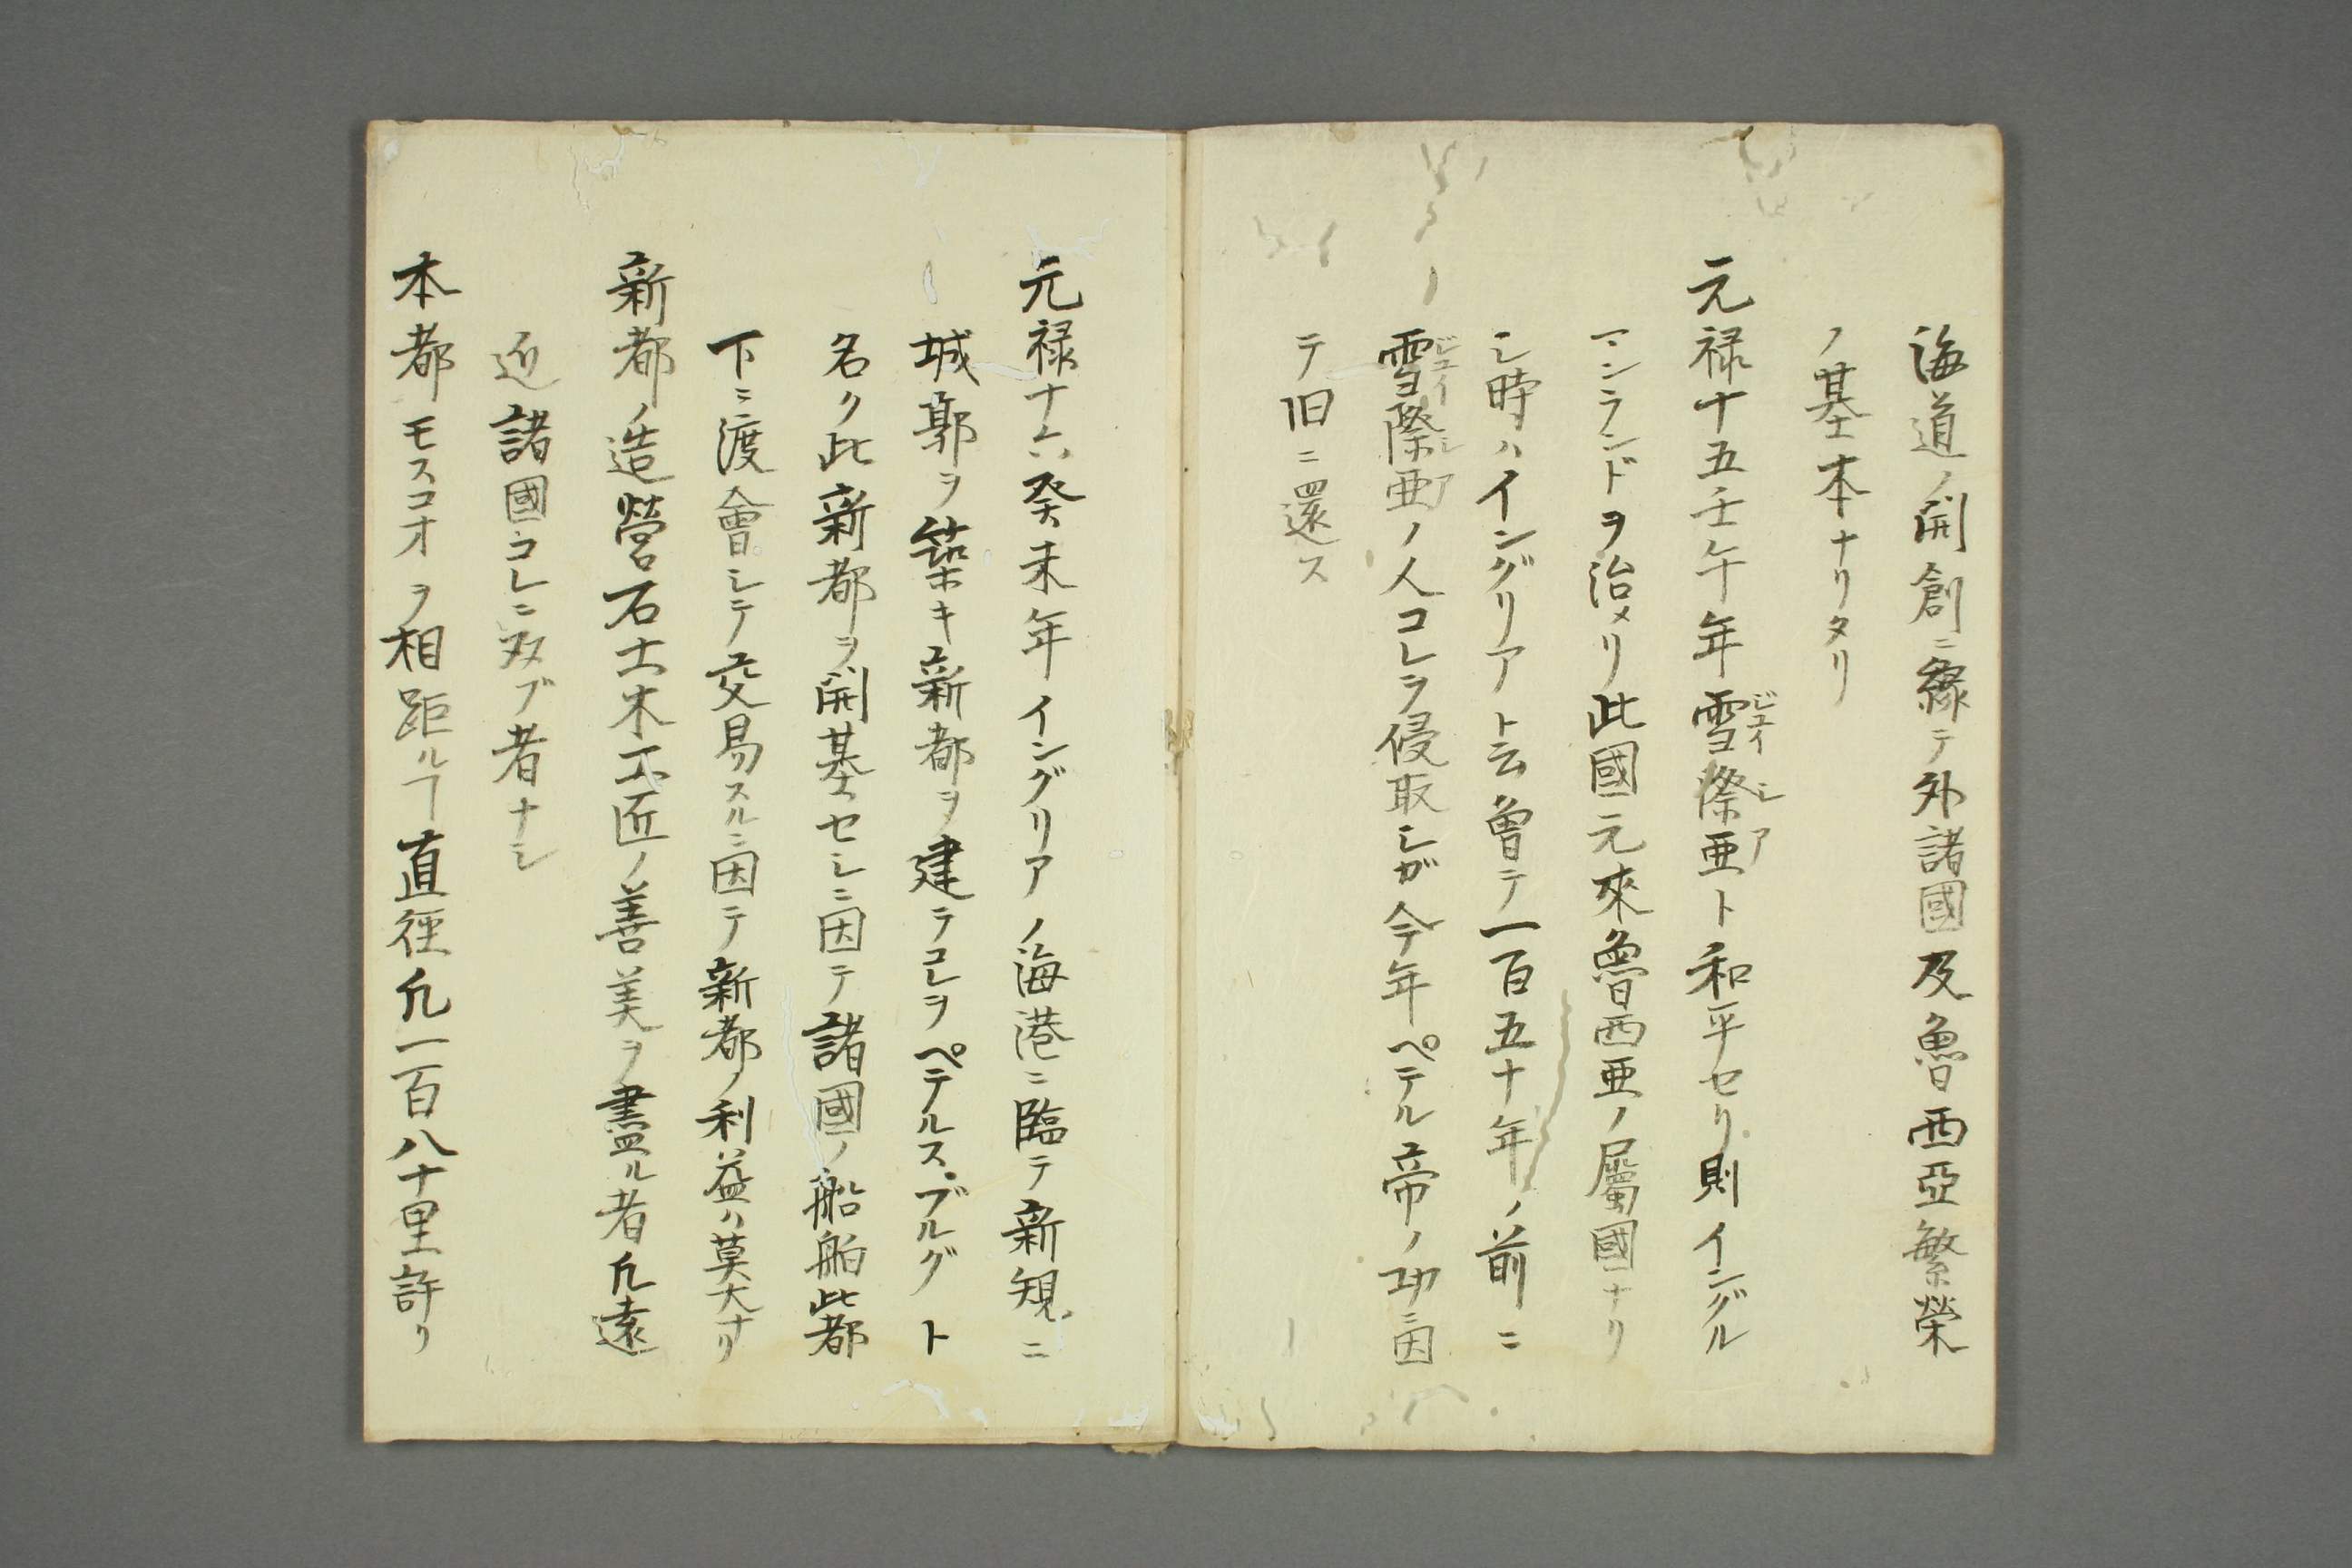 海道ノ開創ニ縁テ外諸國及魯西亞繁榮
ノ基本ナリタリ
元禄十五壬午年雪際亜ト和平セリ則イングル
ビヱイシア
マンランドヲ治メリ此國元來魯西亜ノ屬國ナリ
シ時ハイングリアト云曽テ一百五十年ノ前ニ
雪際亜ノ人コレヲ侵取シガ今年ペテル帝ノ功ニ因
ビヱイシア
テ旧ニ還ス
元禄十六癸未年イングリアノ海港ニ臨テ新規ニ
城郭ヲ築キ新都ヲ建テコレヲペテルスブルグト
名ク此新都ヲ開基セシニ因テ諸國ノ船舶此都
下ニ渡會シテ交易スルニ因テ新都ノ利益ハ莫大ナリ
新都ノ造営石土木工匠ノ善美ヲ盡ル者凡遠
近諸國コレニ双ブ者ナシ
本都モスコオヲ相距ルヿ直徑凡一百八十里許リ